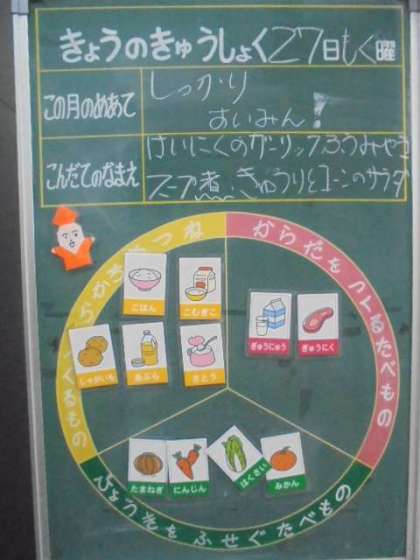 きょうのきゅうしょく27日もく曜
この月のめあて
しっかり
すいみん!
こんだてのなまえ
けいにくのガーリックふうみやき
スープ煮 きゅうりとコーンのサラダ
ねつ
つくるもの
からだをつくるたべもの
ごはん
こむぎこ
じゃがいも
あぶら
さとう
ぎゅうにゅう
ぎゅうにく
たまねぎ
にんじん
はくさい
みかん
びょうきをふせぐたべもの